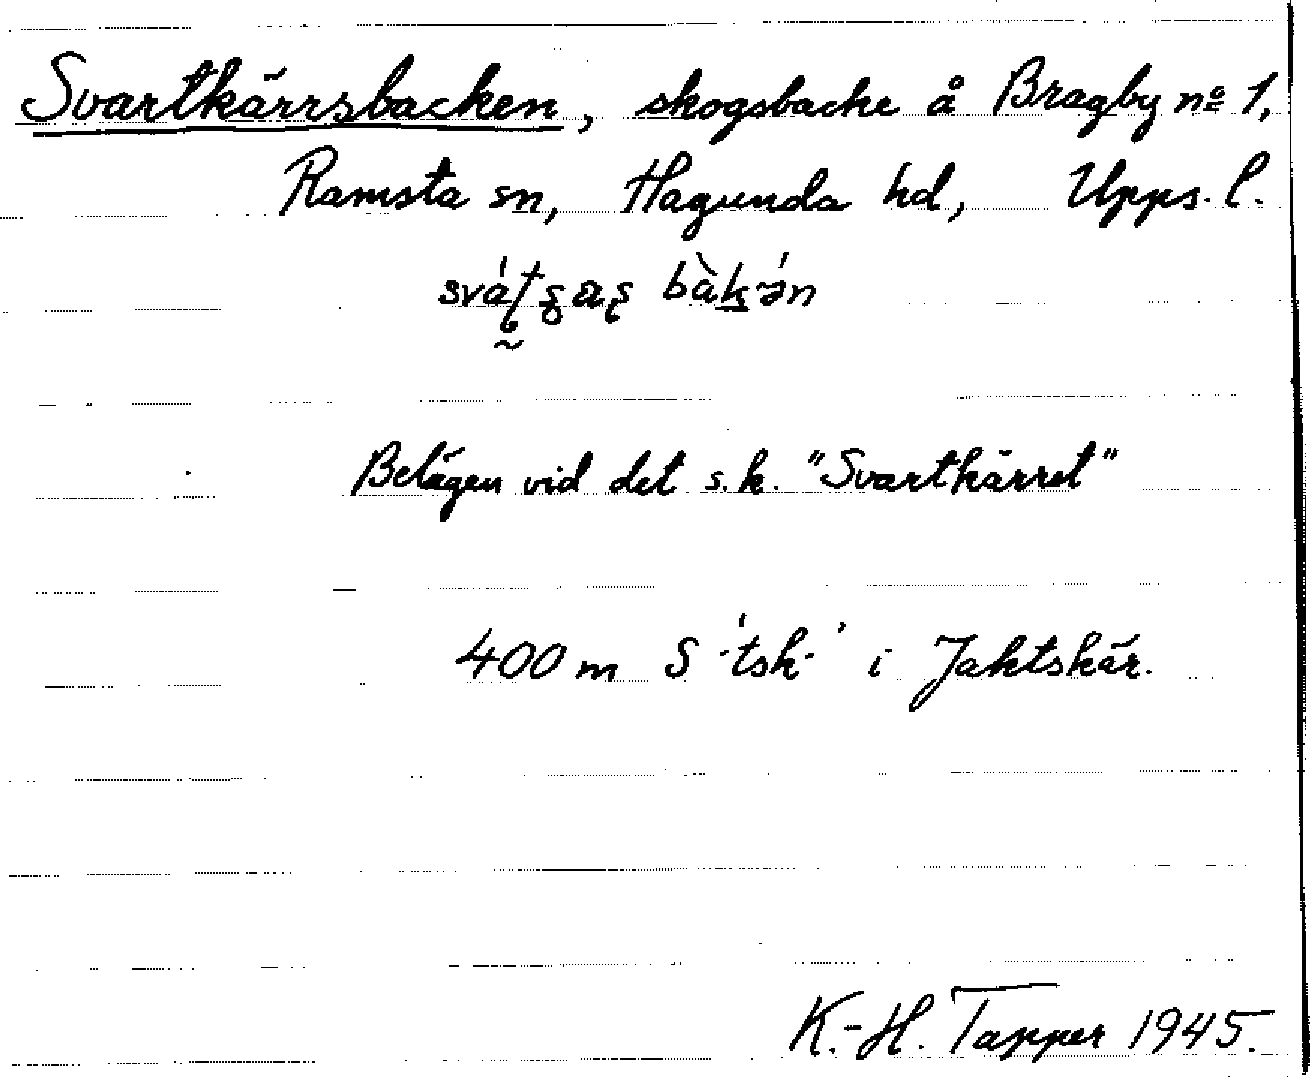 Svartkärrsbacken, skogsbacke å Bragby nº 1,
Ramsta sn, Hagunda hd, Upps. l.
Belägen vid det s.k. "Svartkärret"
400 m S 'tsk-' i Jaktskär.
K.-H. Tapper 1945.